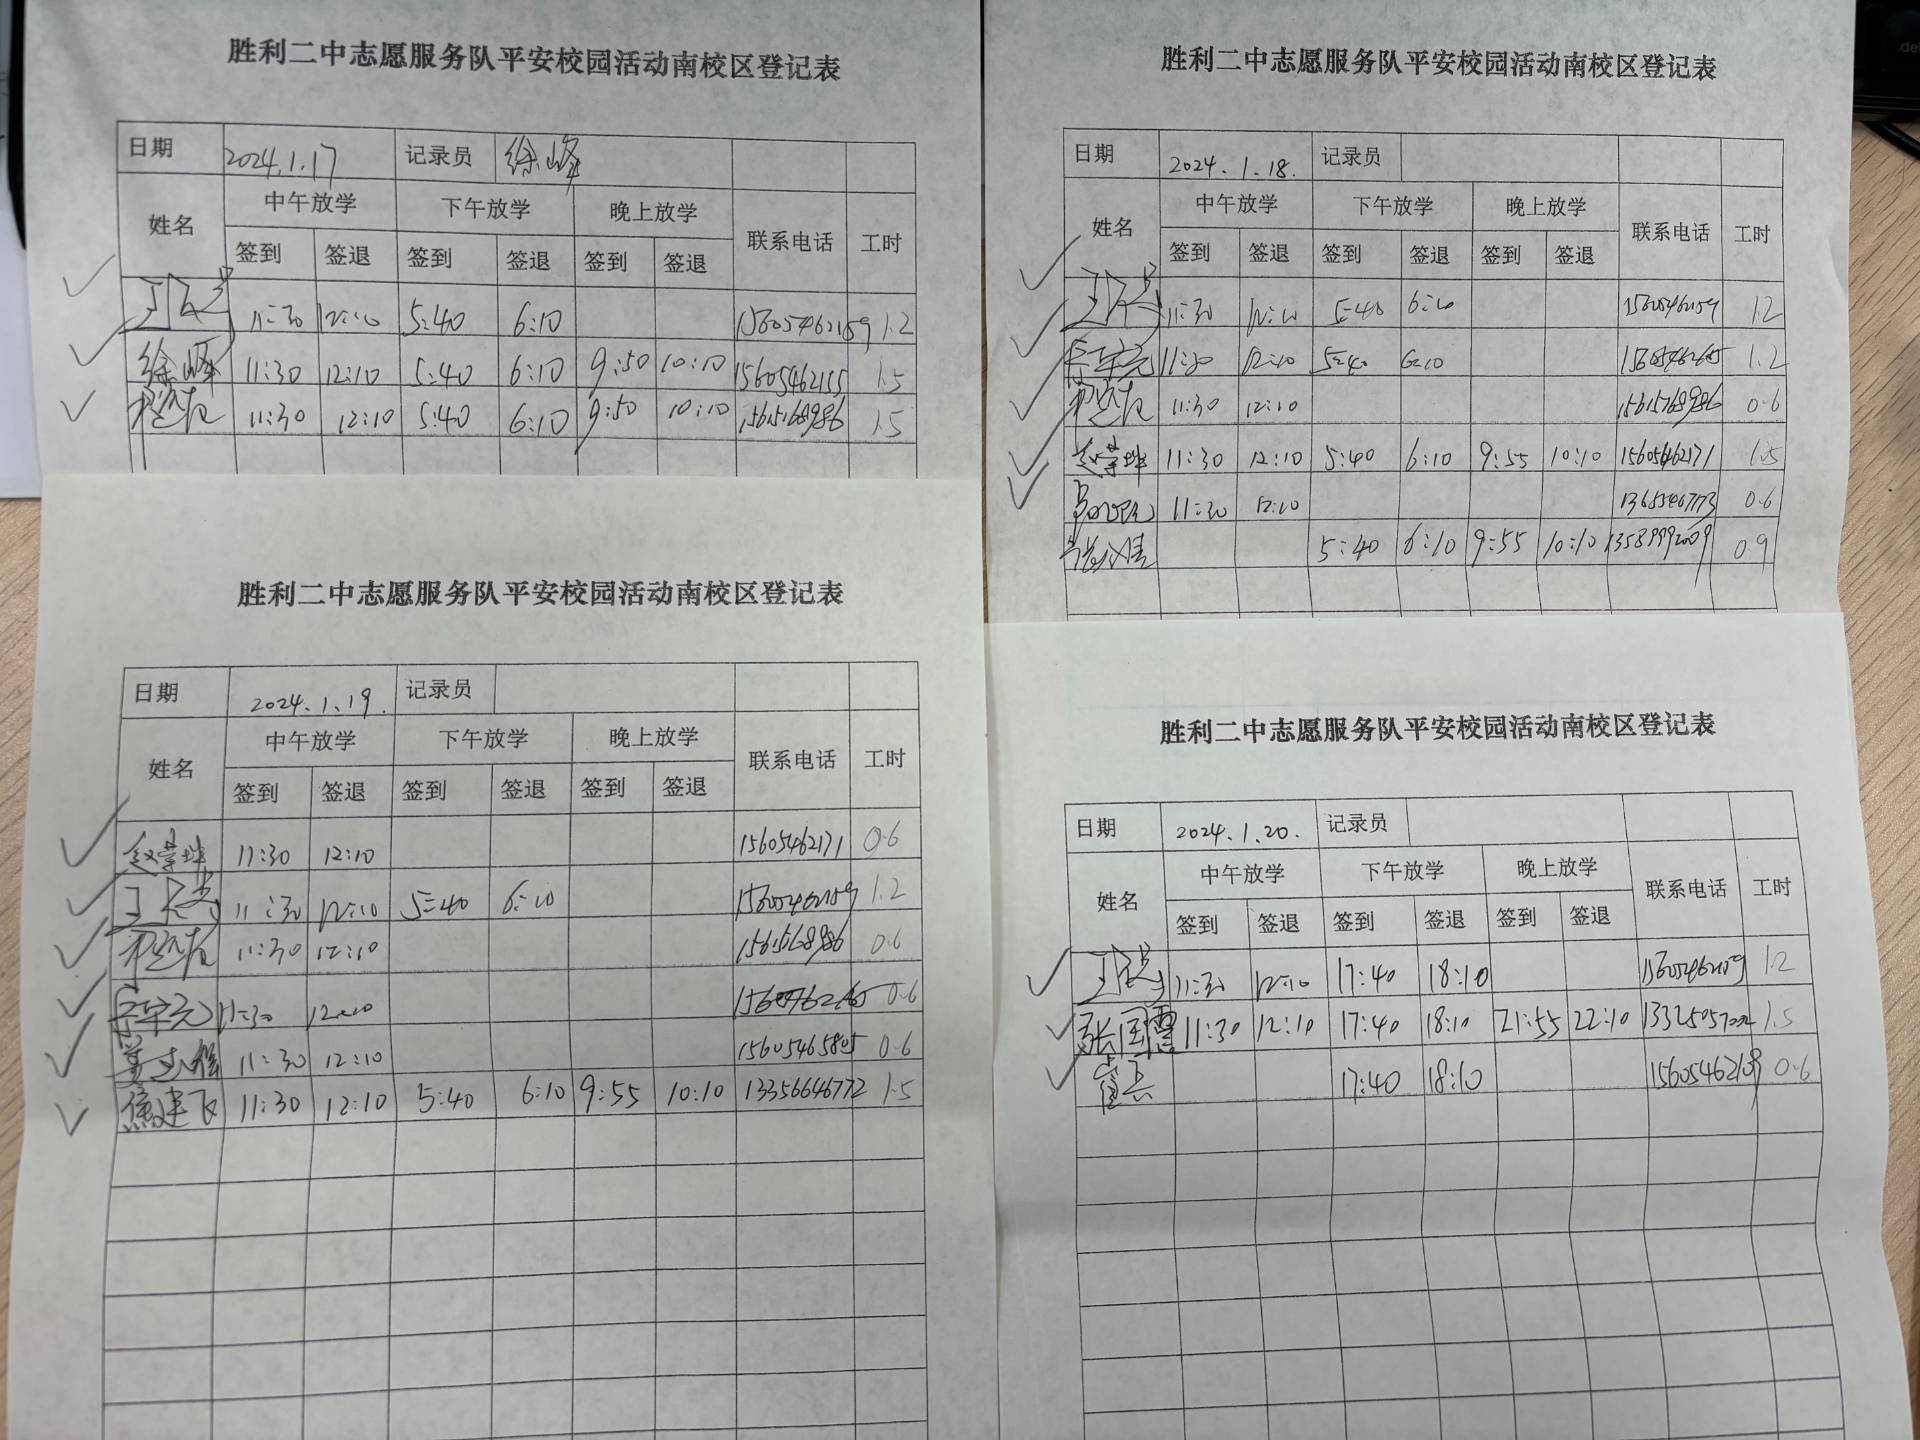 胜利二中志愿服务队平安校园活动南校区登记表
日期 2024.1.17 记录员 徐峰
姓名 中午放学 下午放学 晚上放学 联系电话 工时
签到 签退 签到 签退 签到 签退
11:30 12:10 5:40 6:10 15605462159 1.2
徐峰 11:30 12:10 5:40 6:10 9:50 10:10 15605462155 1.5
11:30 12:10 5:40 6:10 9:50 10:10 1.5
胜利二中志愿服务队平安校园活动南校区登记表
日期 2024.1.18. 记录员
姓名 中午放学 下午放学 晚上放学 联系电话 工时
签到 签退 签到 签退 签到 签退
11:30 12:10 5:40 6:10 15605462159 1.2
11:30 12:10 5:40 6:10 1.2
11:30 12:10 15615768986 0.6
11:30 12:10 5:40 6:10 9:55 10:10 15605462171 1.5
11:30 12:10 13655467173 0.6
5:40 6:10 9:55 10:10 13589992009 0.9
胜利二中志愿服务队平安校园活动南校区登记表
日期 2024.1.19. 记录员
姓名 中午放学 下午放学 晚上放学 联系电话 工时
签到 签退 签到 签退 签到 签退
11:30 12:10 15605462171 0.6
11:30 12:10 5:40 6:10 15605462159 1.2
11:30 12:10 0.6
11:30 12:10 0.6
11:30 12:10 15605465805 0.6
11:30 12:10 5:40 6:10 9:55 10:10 13356646772 1.5
胜利二中志愿服务队平安校园活动南校区登记表
日期 2024.1.20. 记录员
姓名 中午放学 下午放学 晚上放学 联系电话 工时
签到 签退 签到 签退 签到 签退
11:30 12:10 17:40 18:10 15605462159 1.2
张国霞 11:30 12:10 17:40 18:10 21:55 22:10 13325057002 1.5
17:40 18:10 15605462109 0.6